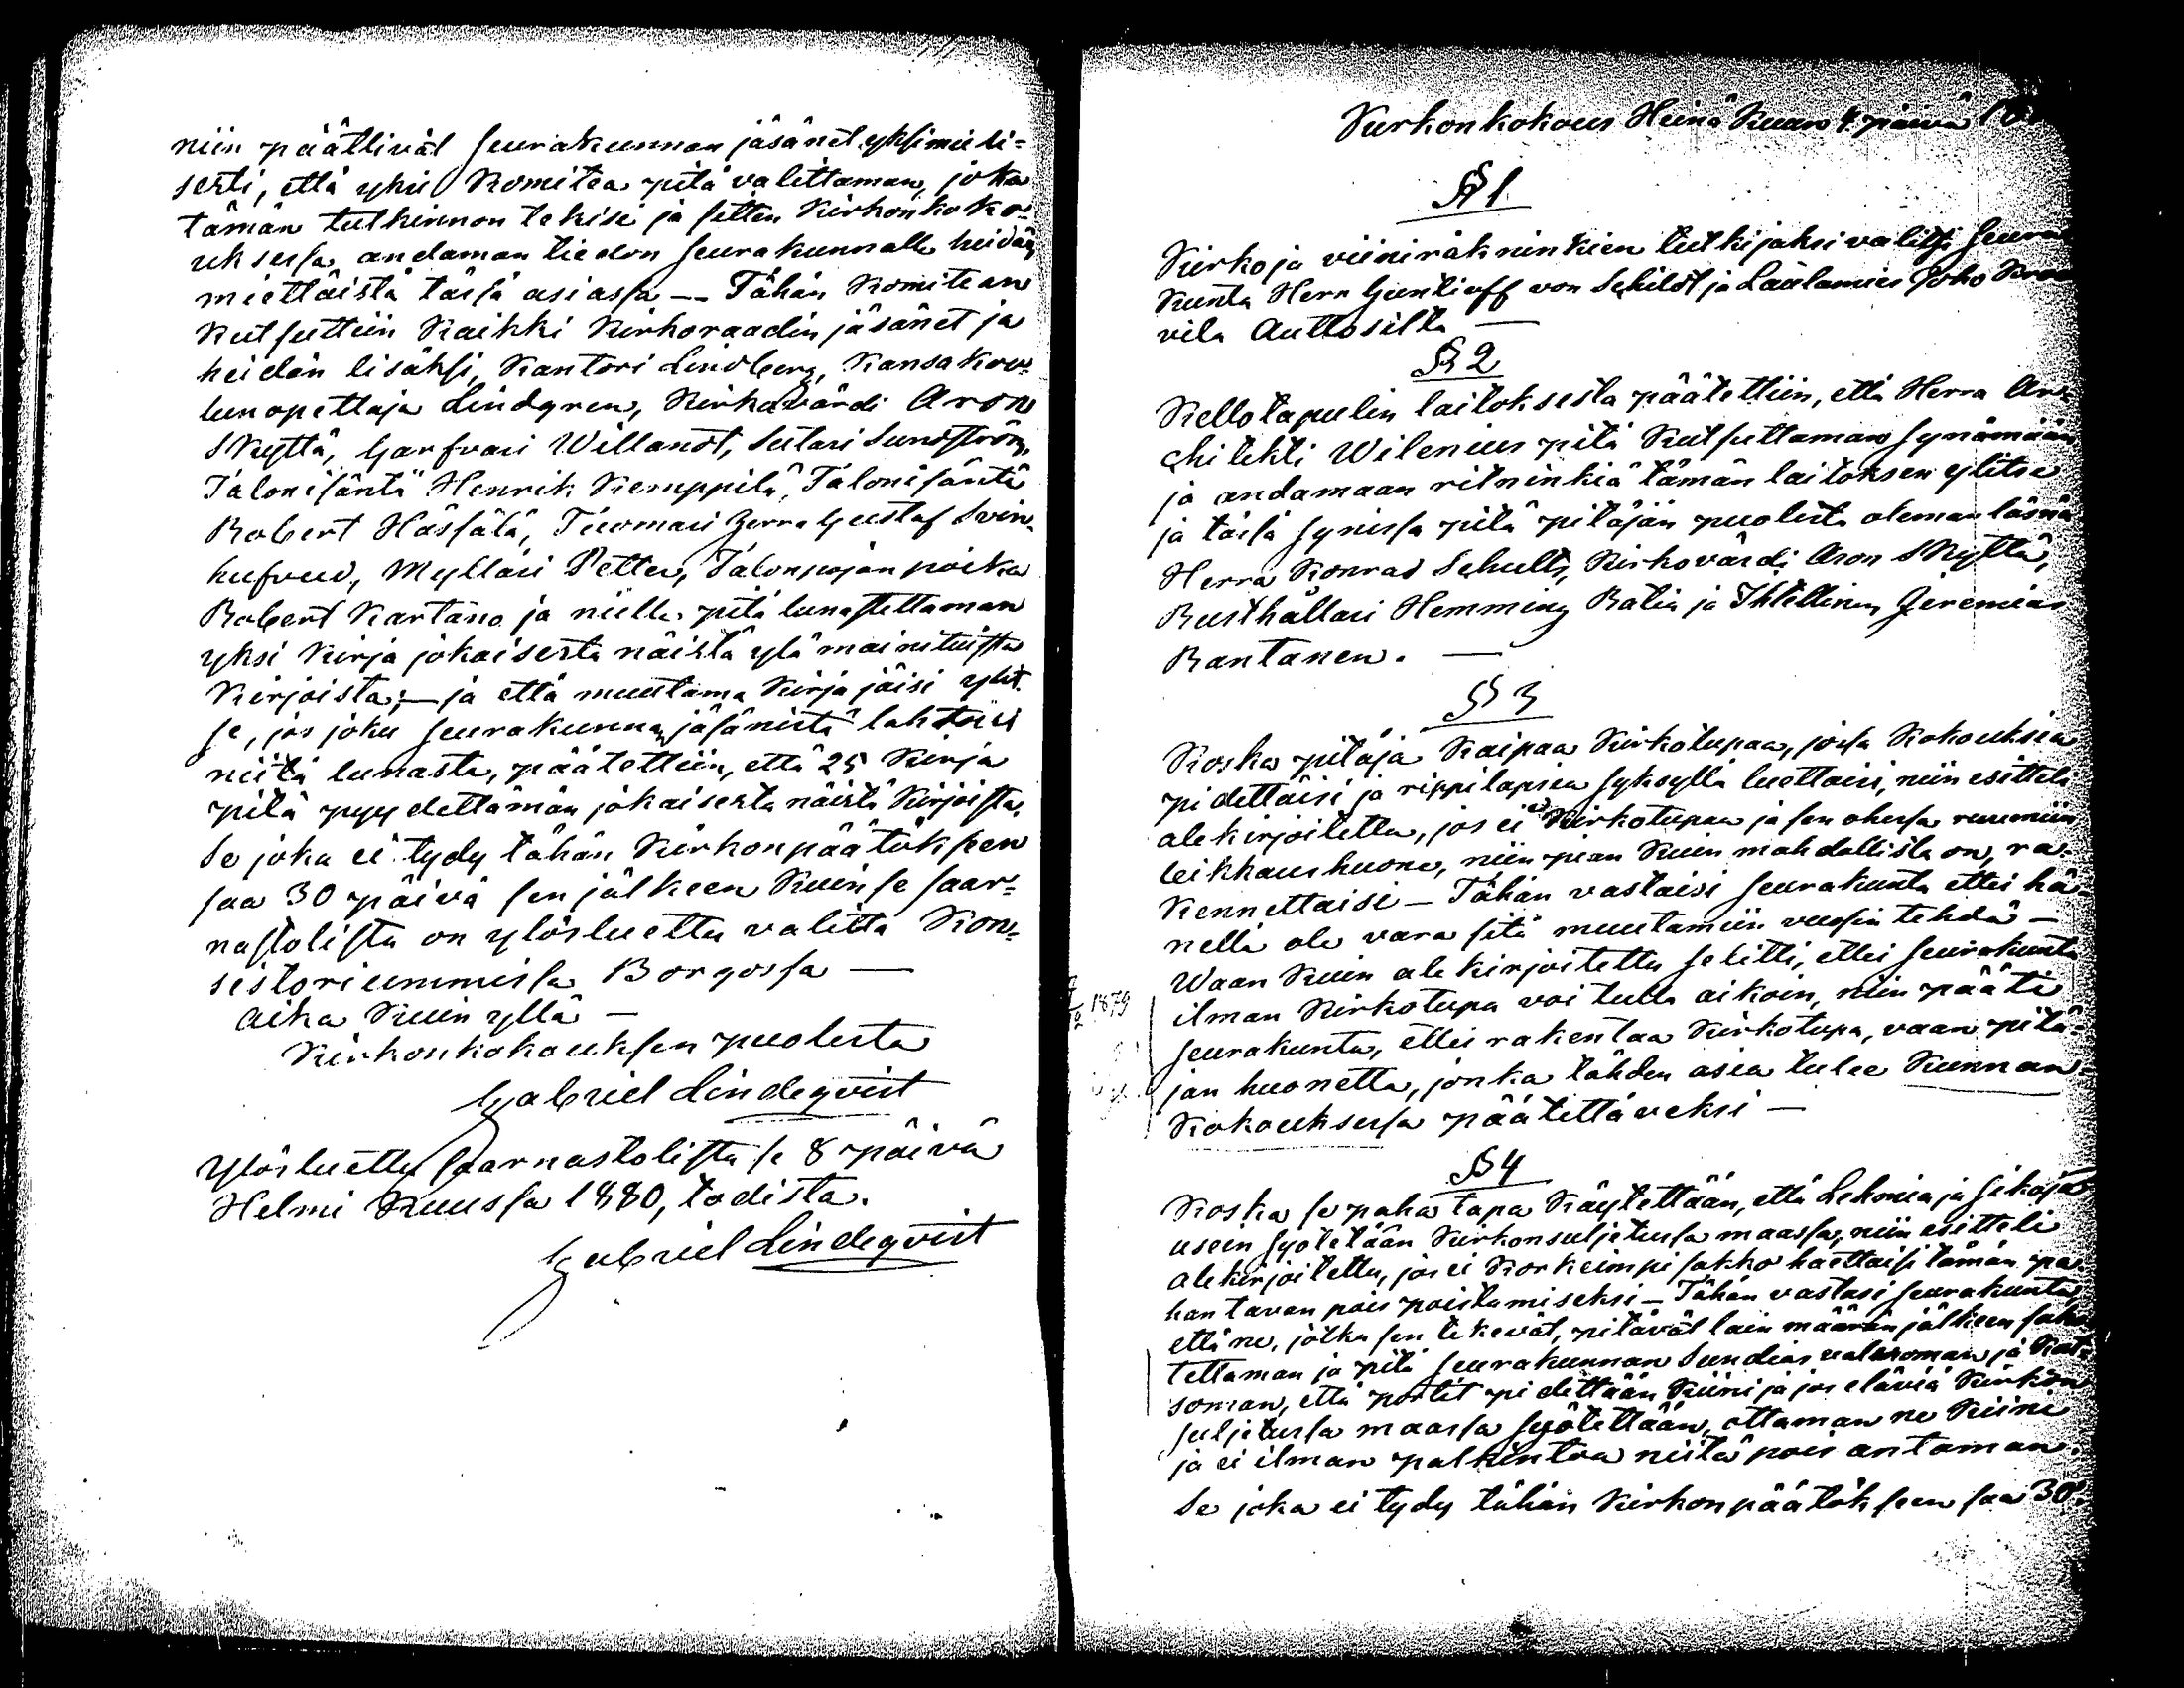 niin päättivät seurakunnan jäsänet yksimieli=
sesti, että yksi Komitea pitä valittaman, joka
tämän tutkinnon tekisi ja sitten Kirkonkoko=
uksessa andaman tiedon seurakunnalle heidän
miettäistä täisä asiassa -- Tähän Komitean
Kutsuttiin Kaikki Kirkoraadin jäsänet ja
heidän lisäksi, Kantori Lindberg, Kansakou=
lunopettaja Lindgren, Kirkovärdi Aron
Skyttä, Garfvari Willandt, Sutari Sundström,
Talonisäntä Henrik Kemppilä, Talonisäntä
Robert Hässälä, Tuomari Herra Gustaf Svin=
hufvud, Myllari Petter, Talonpojan poika
Robert Kartano ja niille pitä lunastettaman
yksi Kirja jokaisesta näistä ylämainituista
Kirjoista; — ja että muutama Kirja jäisi ylit=
se, jos joku seurakunnan jäsänistä lahtoisi
niitä lunasta, päätettiin, että 25 Kirja
pitä pyydettämän jokaisesta näistä Kirjoista.
Se joka ei tydy tähän Kirkonpäätöksseen
saa 30 päivä sen jälkeen Kuin se saar=
nastolista on ylösluettu valitta Kon=
sistoriummissa Borgossa —
Aika Kuin yllä —
Kirkonkokouksen puolesta
Gabriel Lindeqvist
Ylösluettu saarnastolista se 8 päivä
Helmi Kuussa 1880, todista.
Gabriel Lindeqvist
Kirkonkokous Heinä Kuun 4. päivä
§ 1
Kirko ja viiniräkninkien tutkijaksi valitsi seura
Kunta Herr von Schildt ja Läulamies Joho
vila Auttosilta —
§ 2
Kellotapulin laitoksesta päätettiin, että Herra Ar=
chitekti Wilenius pitä Kutsuttaman synämään
ja andamaan ritninkiä tämän laitoksen ylitse
ja täisä synissä pitä pitäjän puolesta oleman läsnä
Herra Konrad Schultz, Kirkovärdi Aron Skyttä,
Rusthållari Hemming Ratia ja Ihtellinen Jeremias
Rantanen. —
§ 3
Koska pitäjä Kaipaa Kirkotupaa, jossa Kokouksia
pidettäisi ja rippilapsia syksyllä luettaisi, niin esitteli
alekirjoitettu, jos ei Kirkotupaa ja sen ohessa ruumiin
leikkaushuone, niin pian Kuin mahdollista on, ra=
Kennettaisi — Tähän vastaisi seurakunta ettei hä=
nellä ole vara sitä muutamiin vuosiin tehdä —
Waan Kuin alekirjoitettu selitti, ettei seurakunta
1879
ilman Kirkotupa voi tulla aikoin, niin pääti
seurakunta, ettei rakentaa Kirkotupa, vaan pitä=
jän huonetta, jonka tähden asia tulee Kunnan=
Kokouksessa päätettäveksi —
§ 4
Koska se paha tapa Käytettään, että Lehmia ja sikoja
usein syötetään Kirkonsuljetussa maassa, niin esitteli
alekirjoitettu, jos ei Korkeimpi sakko haettaisi tämän pa=
han tavan pois poistamiseksi — Tähän vastasi seurakunta,
että ne, jotka sen tekevät, pitävät lain määrän jälkeen sako
tettaman ja pitä seurakunnan Sundiar valvoman ja Kat=
soman, että portit pidettään Kiini ja jos eläviä Kirkon
suljetussa maassa syötettään, ottaman ne Kiini
ja ei ilman palkintoa niitä pois antaman.
Se joka ei tydy tähän Kirkonpäätöksseen saa 30